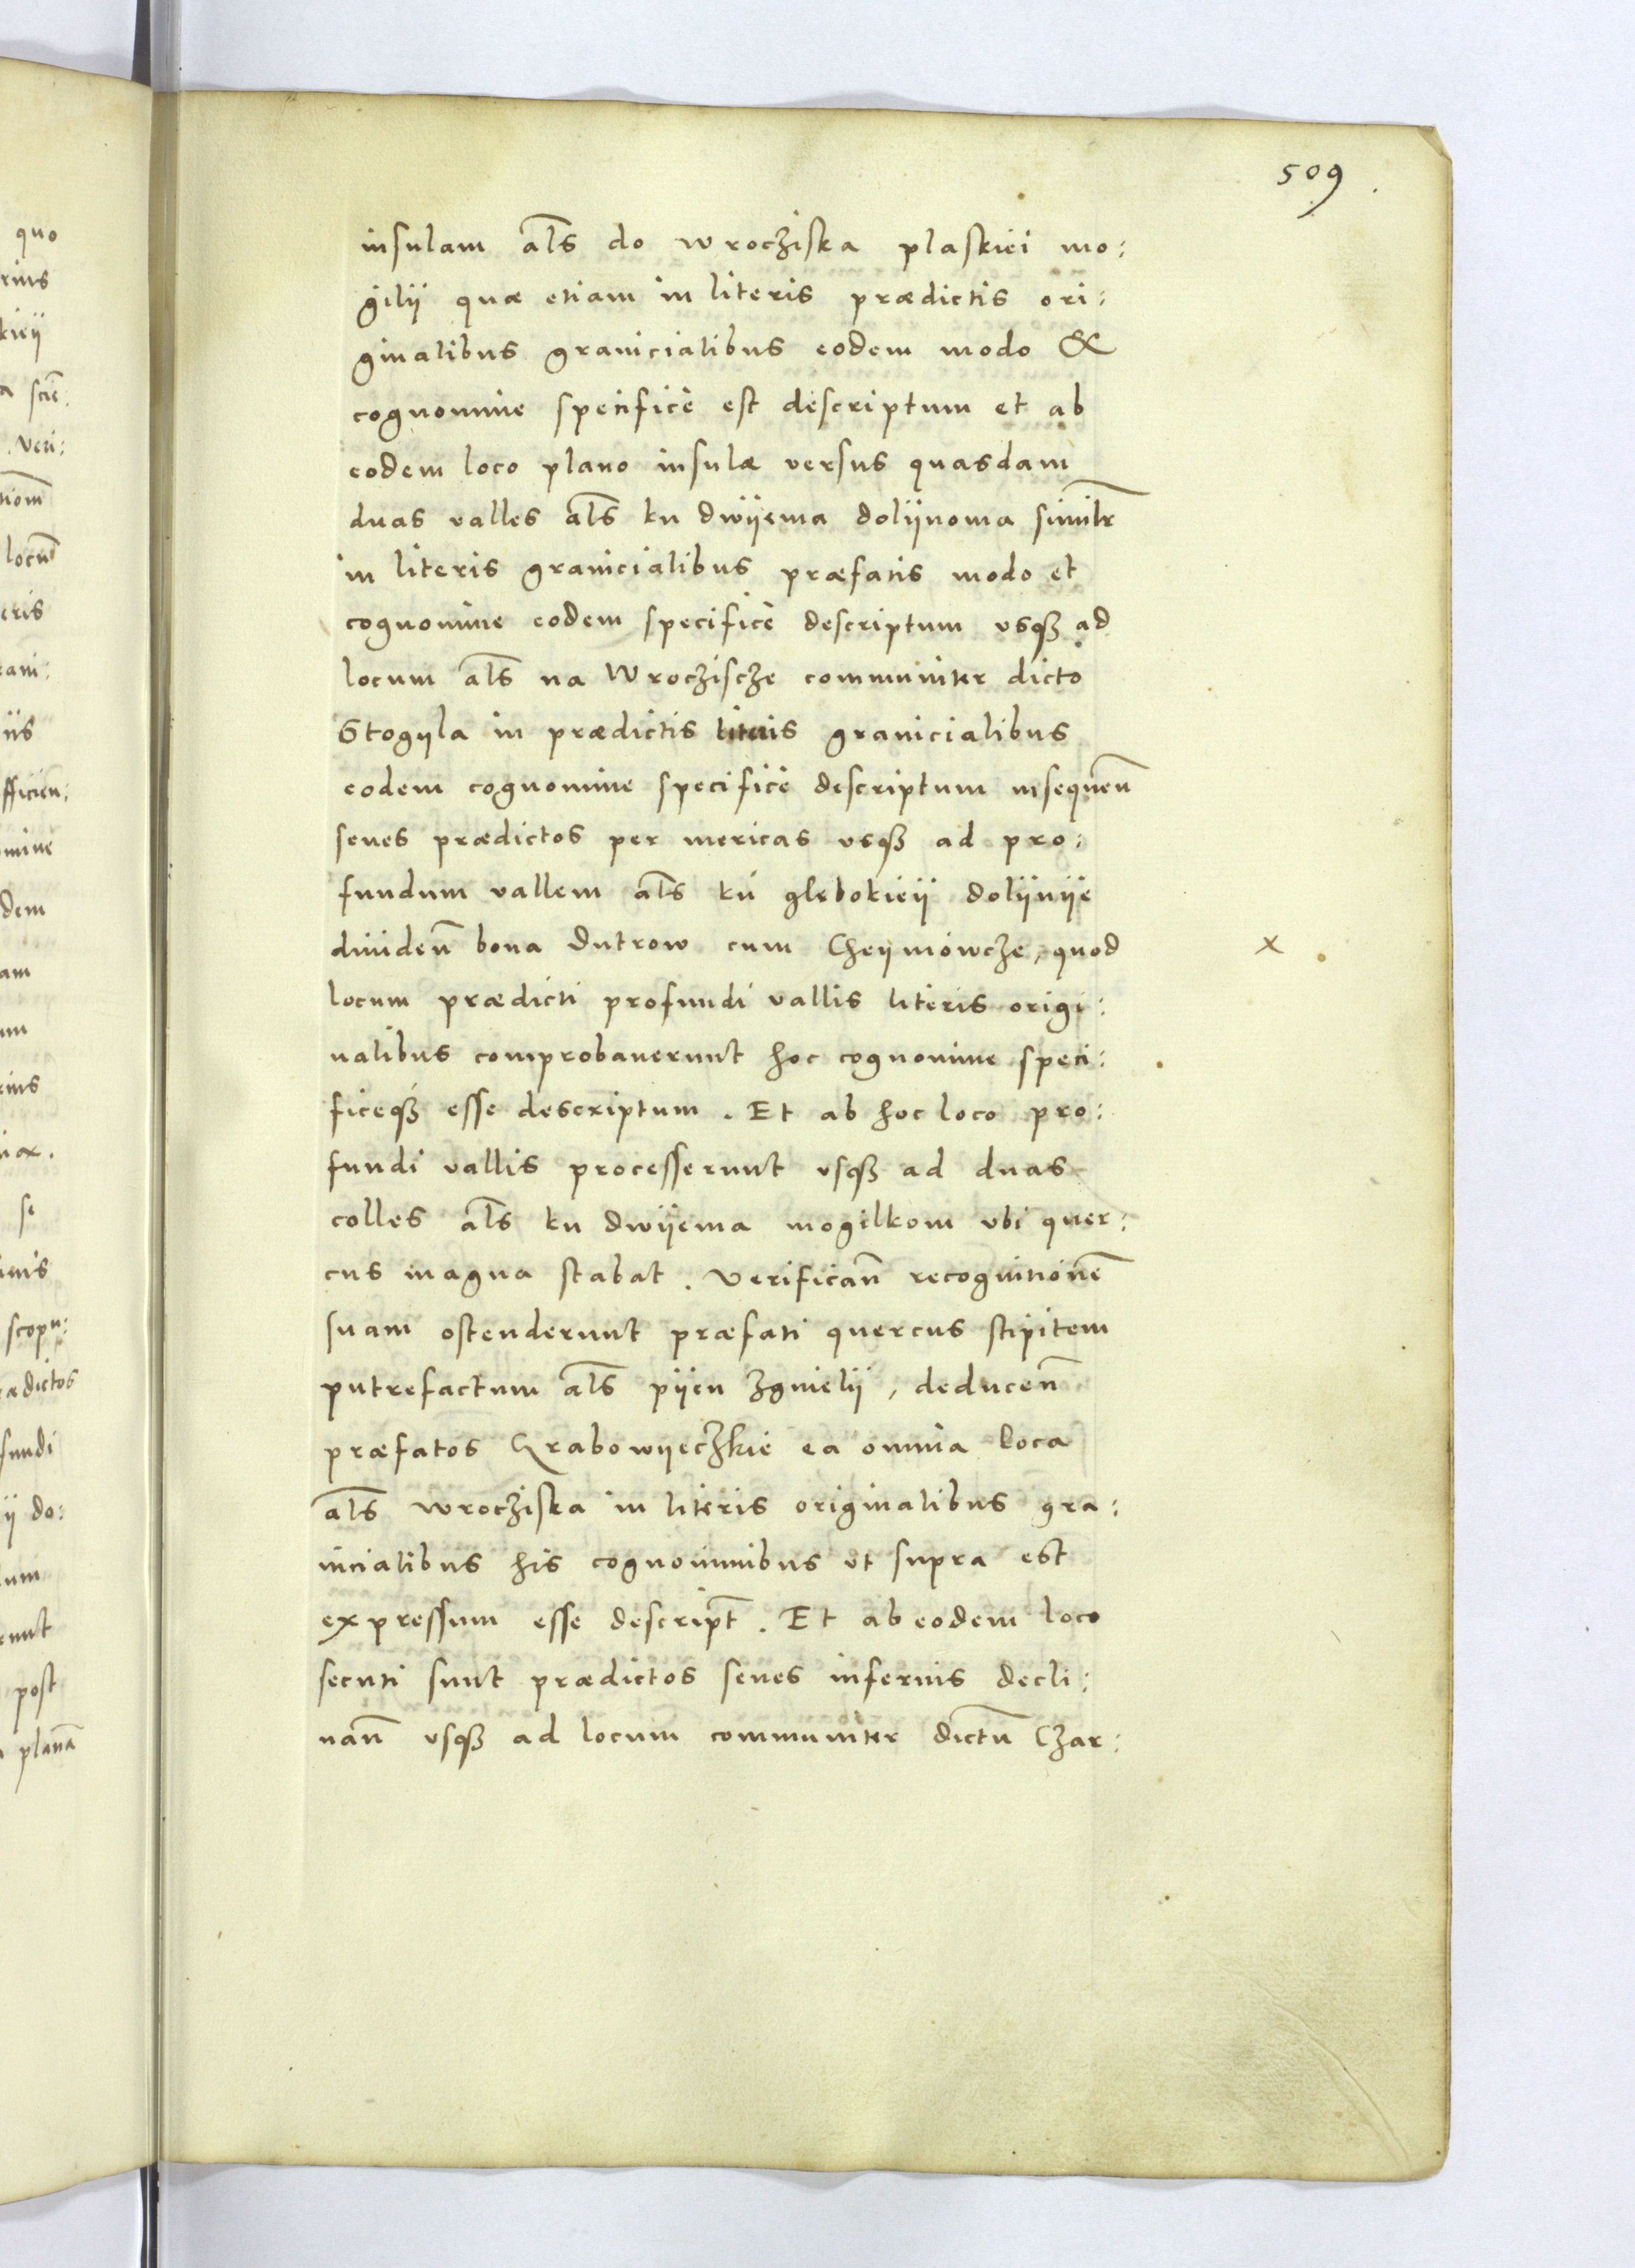 509
insulam al̃s do wrocziska plaskiei mo:
gilÿ quæ etiam in literis prædictis ori:
ginalibus granicialibus eodem modo &
cognomine specifice est descriptum et ab
eodem loco plano insulæ versus quasdam
duas valles al̃s ku dwÿema dolÿnoma similr̃
in literis granicialibus præfatis modo et
cognomine eodem specifice descriptum vsqȝ ad
locum al̃s na Wrocziscze communiter dicto
Stogÿla in prædictis literis granicialibus
eodem cognomine specifice descriptum insequeñ
senes prædictos per mericas vsqȝ ad pro:
fundum vallem al̃s ku glebokieÿ dolÿnÿe
diuideñ bona Dutrow cum Cheÿmowcze, quod
x
locum prædicti profundi vallis literis origi:
nalibus comprobauerunt hoc cognomine speci:
ficeqȝ esse descriptum. Et ab hoc loco pro:
fundi vallis processerunt vsqȝ ad duas
colles al̃s ku dwÿema mogilkom vbi quer:
cus magna stabat. Verificañ recognitionẽ
suam ostenderunt præfati quercus stipitem
putrefactum al̃s pÿen zgnielÿ, deduceñ
præfatos Grabowÿeczkie ea omnia loca
al̃s wrocziska in literis originalibus gra:
nicialibus his cognominibus vt supra est
expressum esse descript̃. Et ab eodem loco
secuti sunt prædictos senes infernis decli:
nañ vsqȝ ad locum communiter dictũ Czar: